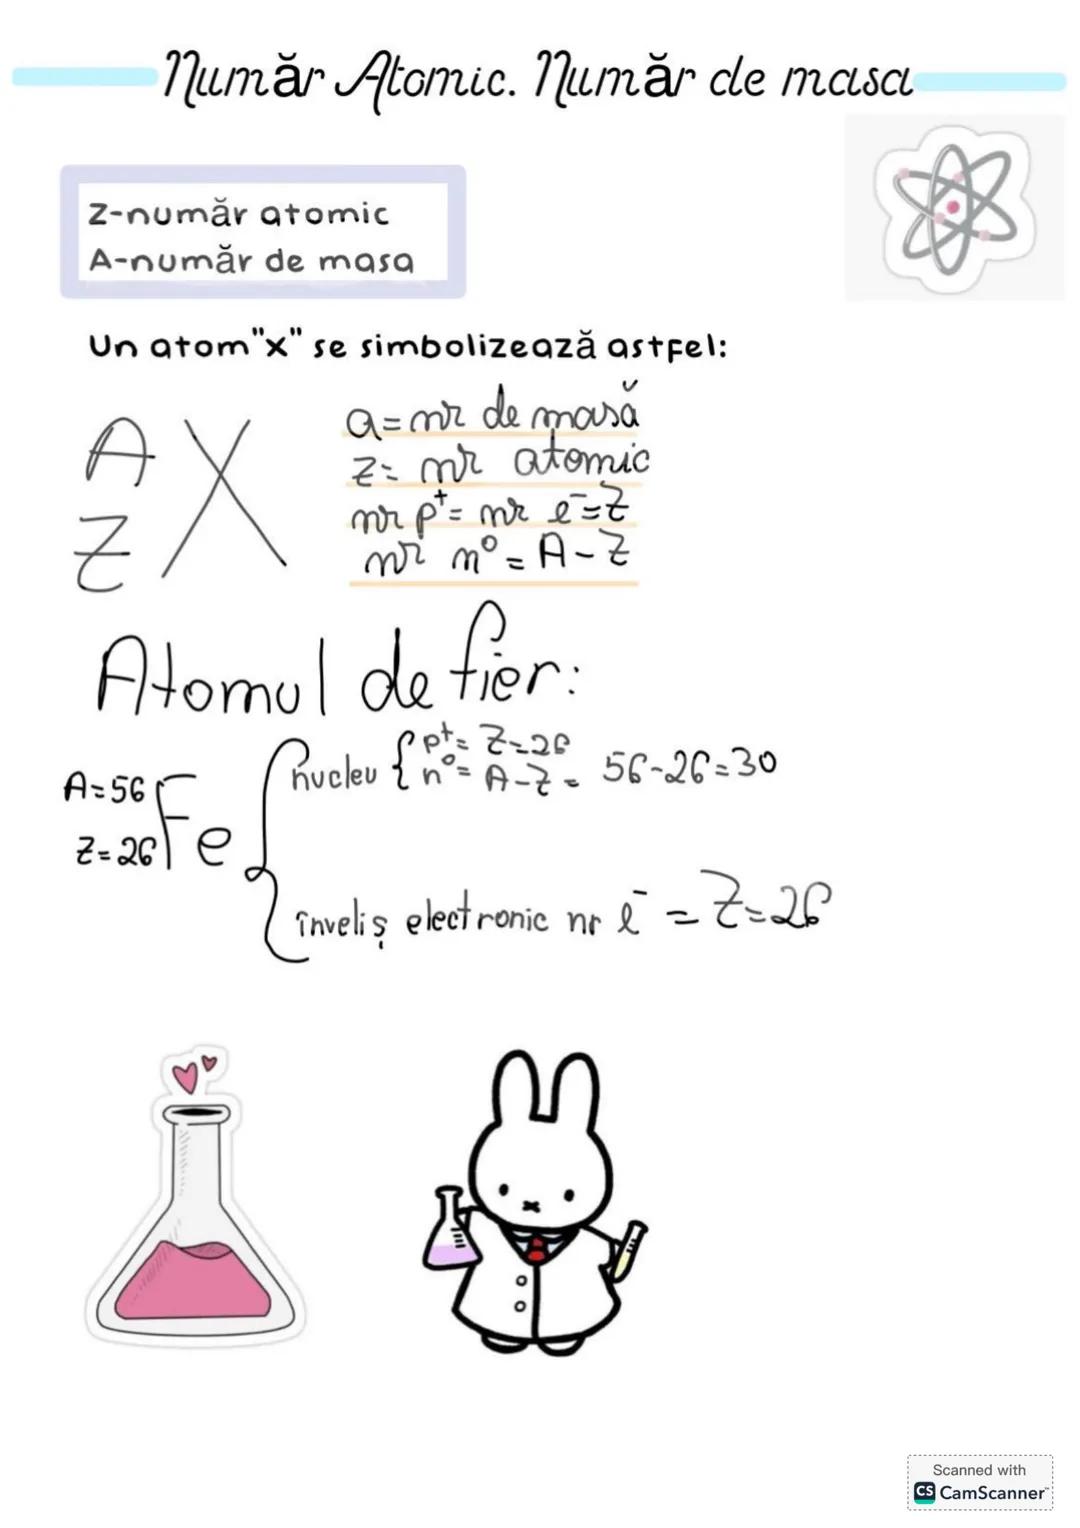 Număr Atomic. Număr de masa
Z-număr atomic
A-număr de masa
Un atom"x" se simbolizează astfel:
A X
Z
a=nr de masă
Z= nr atomic
nr p⁺= nr e⁻=Z
nr n⁰= A-Z
Atomul de fier:
nucleu { p⁺= Z=26
n⁰= A-Z= 56-26=30
A=56 Fe
Z=26
înveliș electronic nr e⁻ = Z=26
Scanned with
CS CamScanner